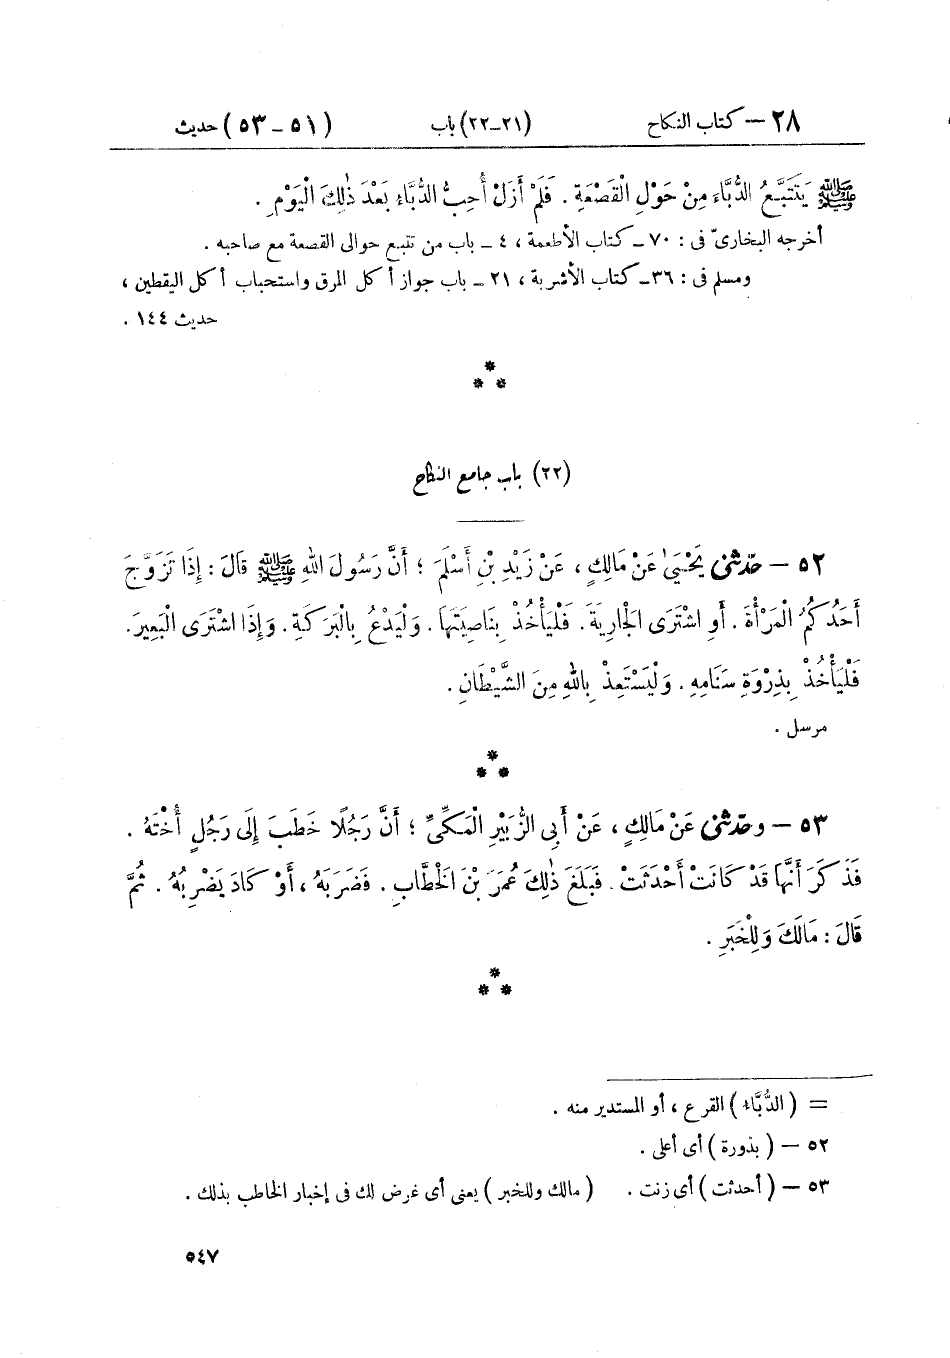 ٢٨ — كتاب النكاح (٢١-٢٢) باب (٥١-٥٣) حديث
ﷺ يَتَتَبَّعُ الدُّبَّاءَ مِنْ حَوْلِ الْقَصْعَةِ . فَلَمْ أَزَلْ أُحِبُّ الدُّبَّاءَ بَعْدَ ذٰلِكَ الْيَوْمِ .
أخرجه البخارىّ فى : ٧٠ ــ كتاب الأطعمة ، ٤ ــ باب من تتبع حوالى القصعة مع صاحبه .
ومسلم فى : ٣٦ــ كتاب الأشربة ، ٢١ ــ باب جواز أكل المرق واستحباب أكل اليقطين ،
حديث ١٤٤ .
*
* *
(٢٢) باب جامع النكاح
٥٢ — حدّثنى يَحْيَىٰ عَنْ مَالِكٍ ، عَنْ زَيْدِ بْنِ أَسْلَمَ ؛ أَنَّ رَسُولَ اللهِ ﷺ قَالَ : إِذَا تَزَوَّجَ
أَحَدُكُمُ الْمَرْأَةَ . أَوِ اشْتَرَى الْجَارِيَةَ . فَلْيَأْخُذْ بِنَاصِيَتِهَا . وَلْيَدْعُ بِالْبَرَكَةِ . وَإِذَا اشْتَرَى الْبَعِيرَ .
فَلْيَأْخُذْ بِذِرْوَةِ سَنَامِهِ . وَلْيَسْتَعِذْ بِاللهِ مِنَ الشَّيْطَانِ .
مرسل .
*
* *
٥٣ — وحدّثنى عَنْ مَالِكٍ ، عَنْ أَبِى الزُّبَيْرِ الْمَكِّىِّ ؛ أَنَّ رَجُلًا خَطَبَ إِلَى رَجُلٍ أُخْتَهُ .
فَذَكَرَ أَنَّهَا قَدْ كَانَتْ أَحْدَثَتْ . فَبَلَغَ ذٰلِكَ عُمَرَ بْنَ الْخَطَّابِ . فَضَرَبَهُ ، أَوْ كَادَ يَضْرِبُهُ . ثُمَّ
قَالَ : مَالَكَ وَلِلْخَبَرِ .
*
* *
= ( الدُّبَّاء ) القرع ، أو المستدير منه .
٥٢ — ( بذورة ) أى أعلى .
٥٣ — ( أحدثت ) أى زنت . ( مالك وللخبر ) يعنى أى غرض لك فى إخبار الخاطب بذلك .
٥٤٧